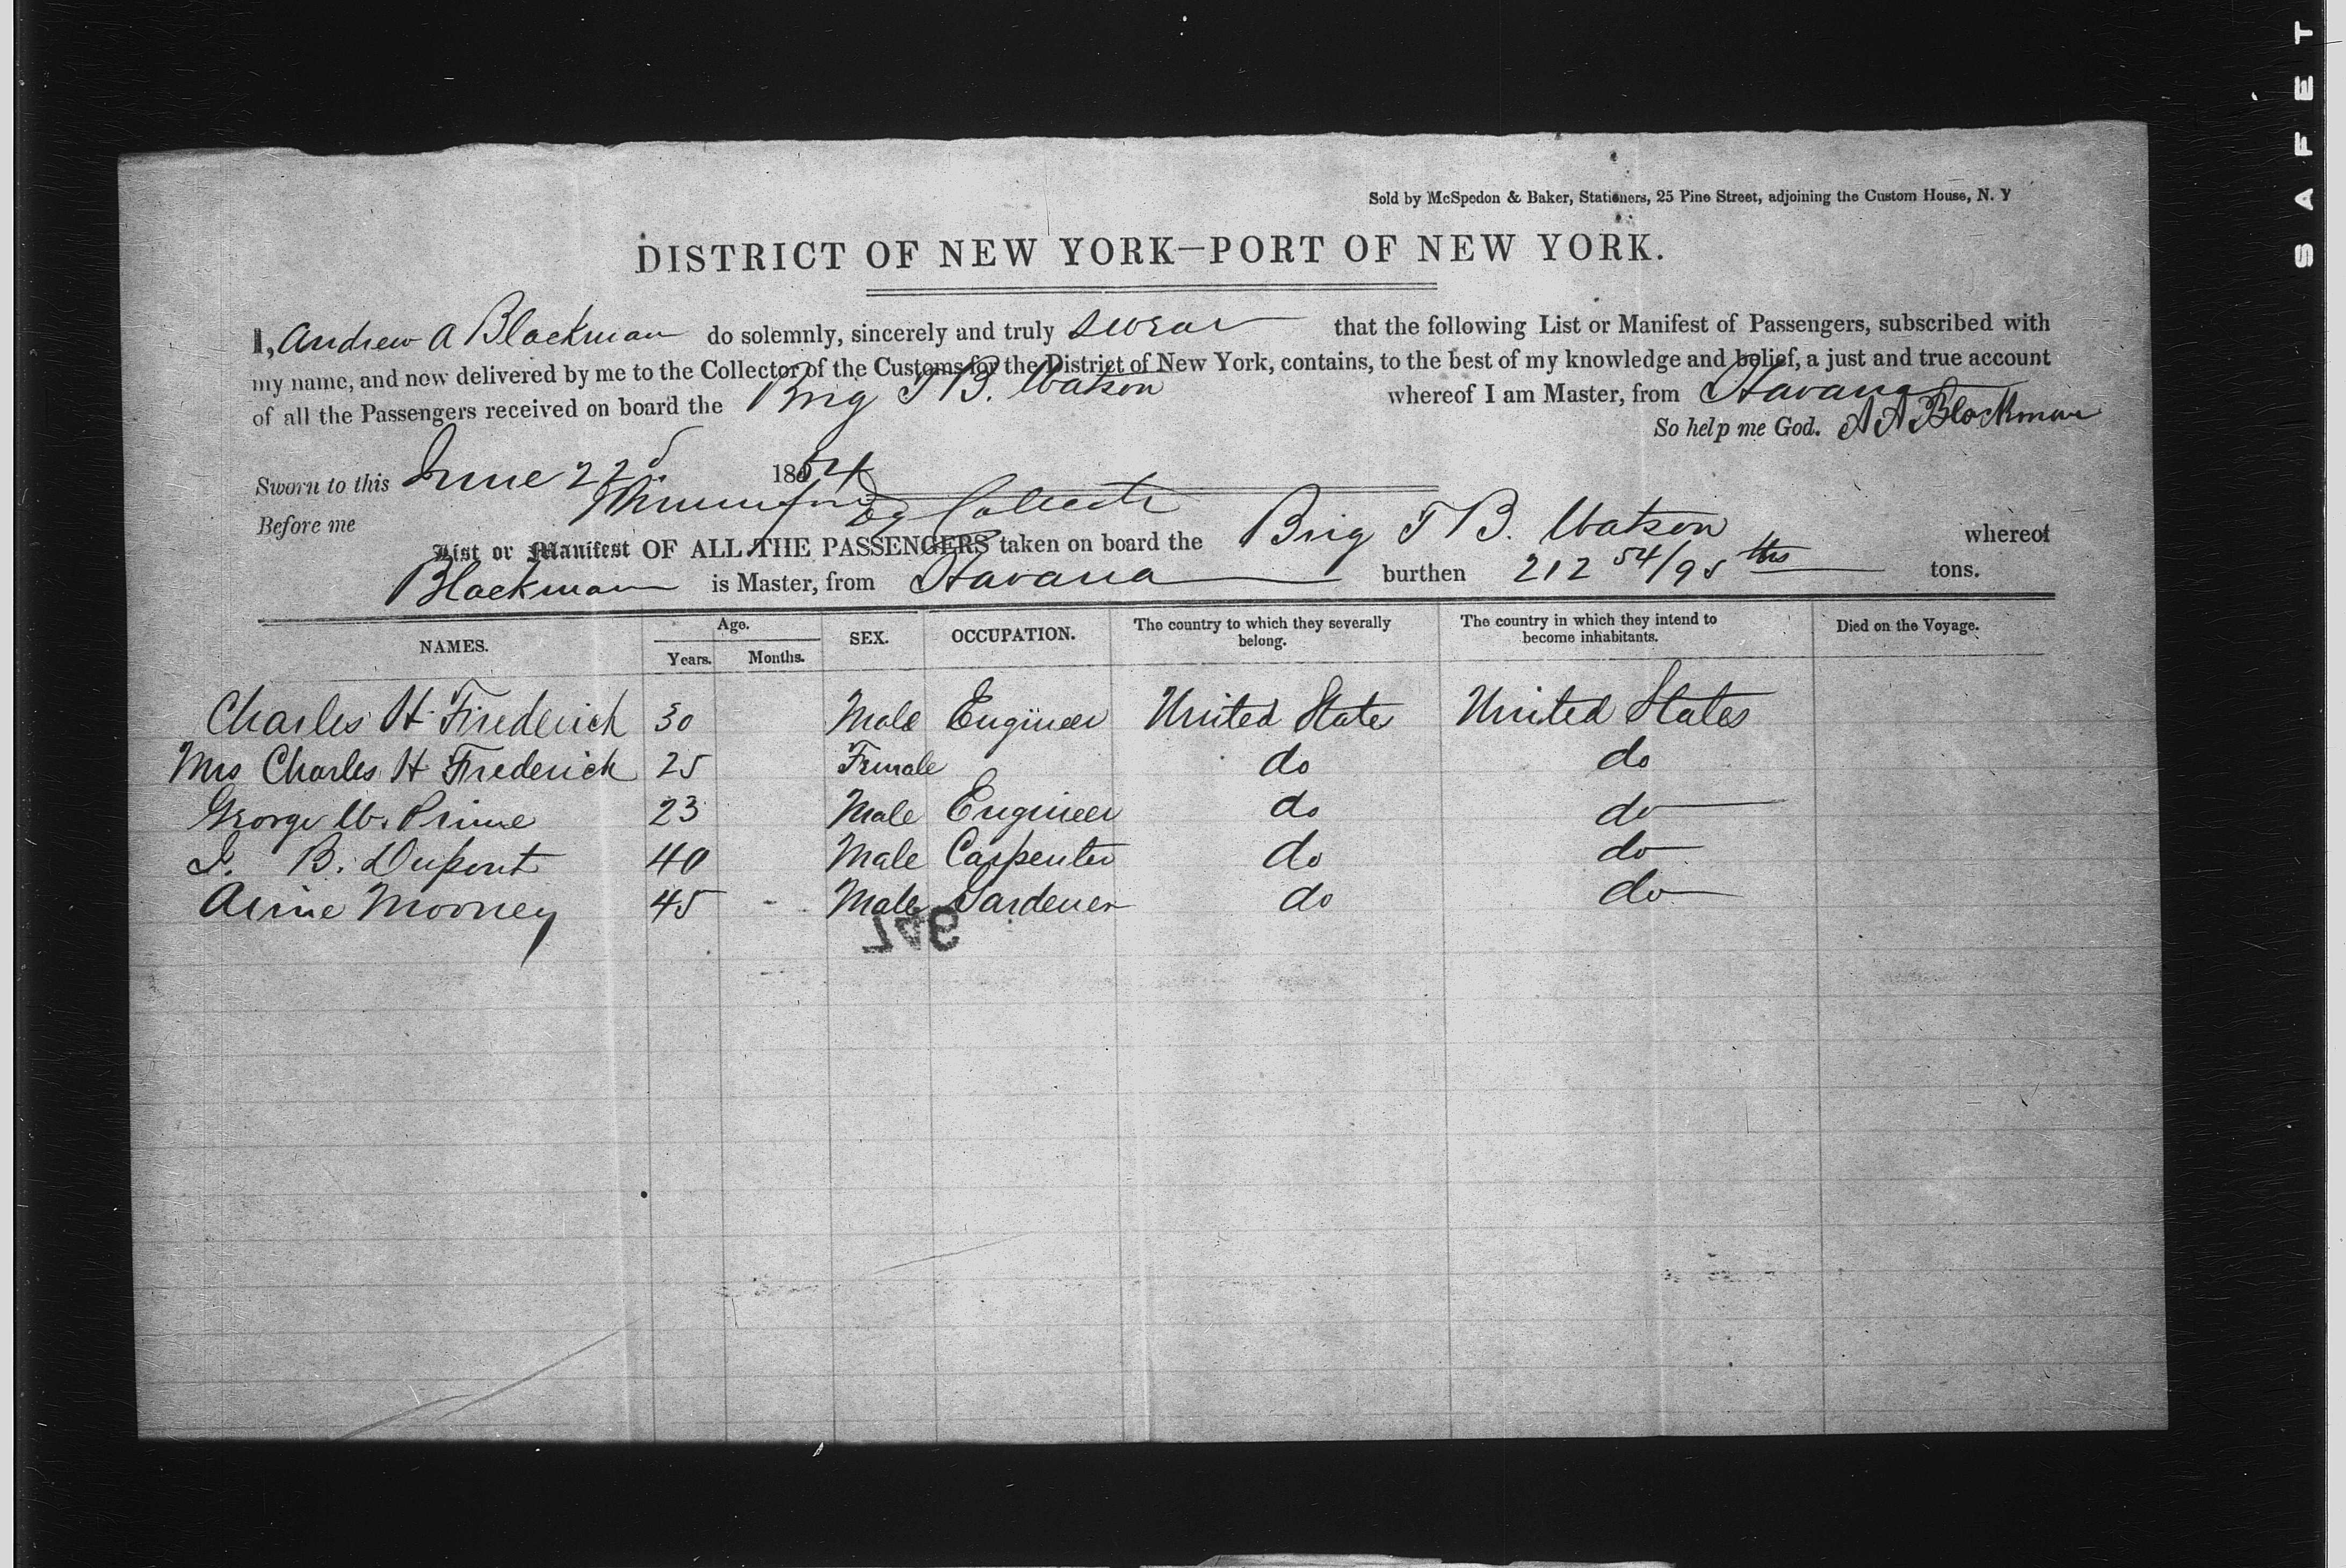 SAFET
Sold by McSpedon & Baker, Stationers, 25 Pine Street, adjoining the Custom House, N. Y
DISTRICT OF NEW YORK—PORT OF NEW YORK.
I, Andrew A Blackman do solemnly, sincerely and truly swear that the following List or Manifest of Passengers, subscribed with
my name, and now delivered by me to the Collector of the Customs for the District of New York, contains, to the best of my knowledge and belief, a just and true account
of all the Passengers received on board the Brig T B. Watson whereof I am Master, from Havana
So help me God. A A Blackman
Sworn to this June 22d 1854
Before me Dy Collector
List or Manifest OF ALL THE PASSENGERS taken on board the Brig T B. Watson whereof
Blackman is Master, from Havana burthen 212 54/95 ths tons.
NAMES. Age. Years. Months. SEX. OCCUPATION. The country to which they severally belong. The country in which they intend to become inhabitants. Died on the Voyage.
Charles H Frederick 30 Male Engineer United State United States
Mrs Charles H Frederick 25 Female do do
George W. Prime 23 Male Engineer do do
B. Dupont 40 Male Carpenter do do
Mooney 45 - Male Gardener do do